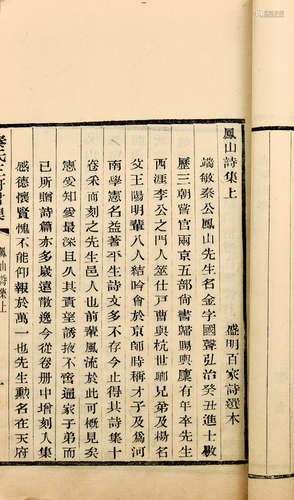 鳳山詩集上
盛明百家詩選本
端敏秦公鳳山先生名金字國聲弘治癸丑進士敭
歷三朝嘗官兩京五部尚書歸賜與廩有年奉先生
西涯李公之門人筮仕戸曹與杭世卿兄弟及楊名
父王陽明輩八人結唫會於京師時稱才子及爲河
南學憲名益著平生詩文多不存今止得其詩集十
卷釆而刻之先生邑人也前輩風流於此可概見矣
憲愛知愛最深且久其責望誘掖不啻通家子弟而
已所贈詩篇亦多歲遠散逸今從卷册中增刻入集
感德懷賢愧不能有仰報於萬一也先生勲名在天府
鳳山詩集上